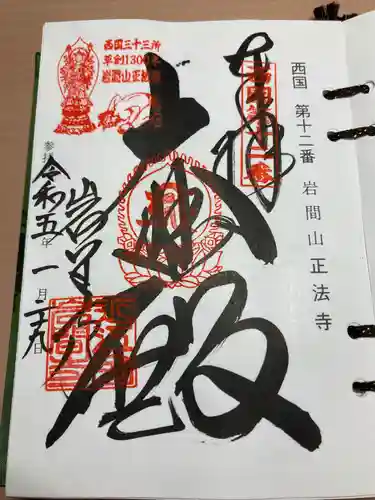 西国 第十二番 岩間山正法寺
奉拝
大悲殿
岩間寺
参拝
令和五年
一月二十九日
西国三十三所
草創1300年
岩間山正法寺